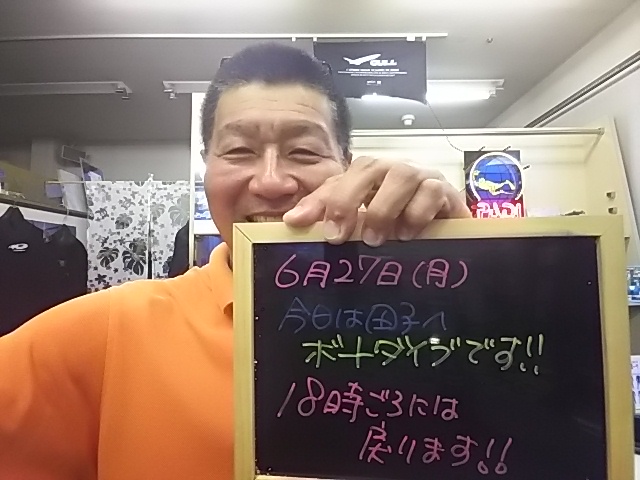 GULL
PADI
6月27日(月)
今日は田子へ
ボートダイブです!!
18時ごろには
戻ります!!